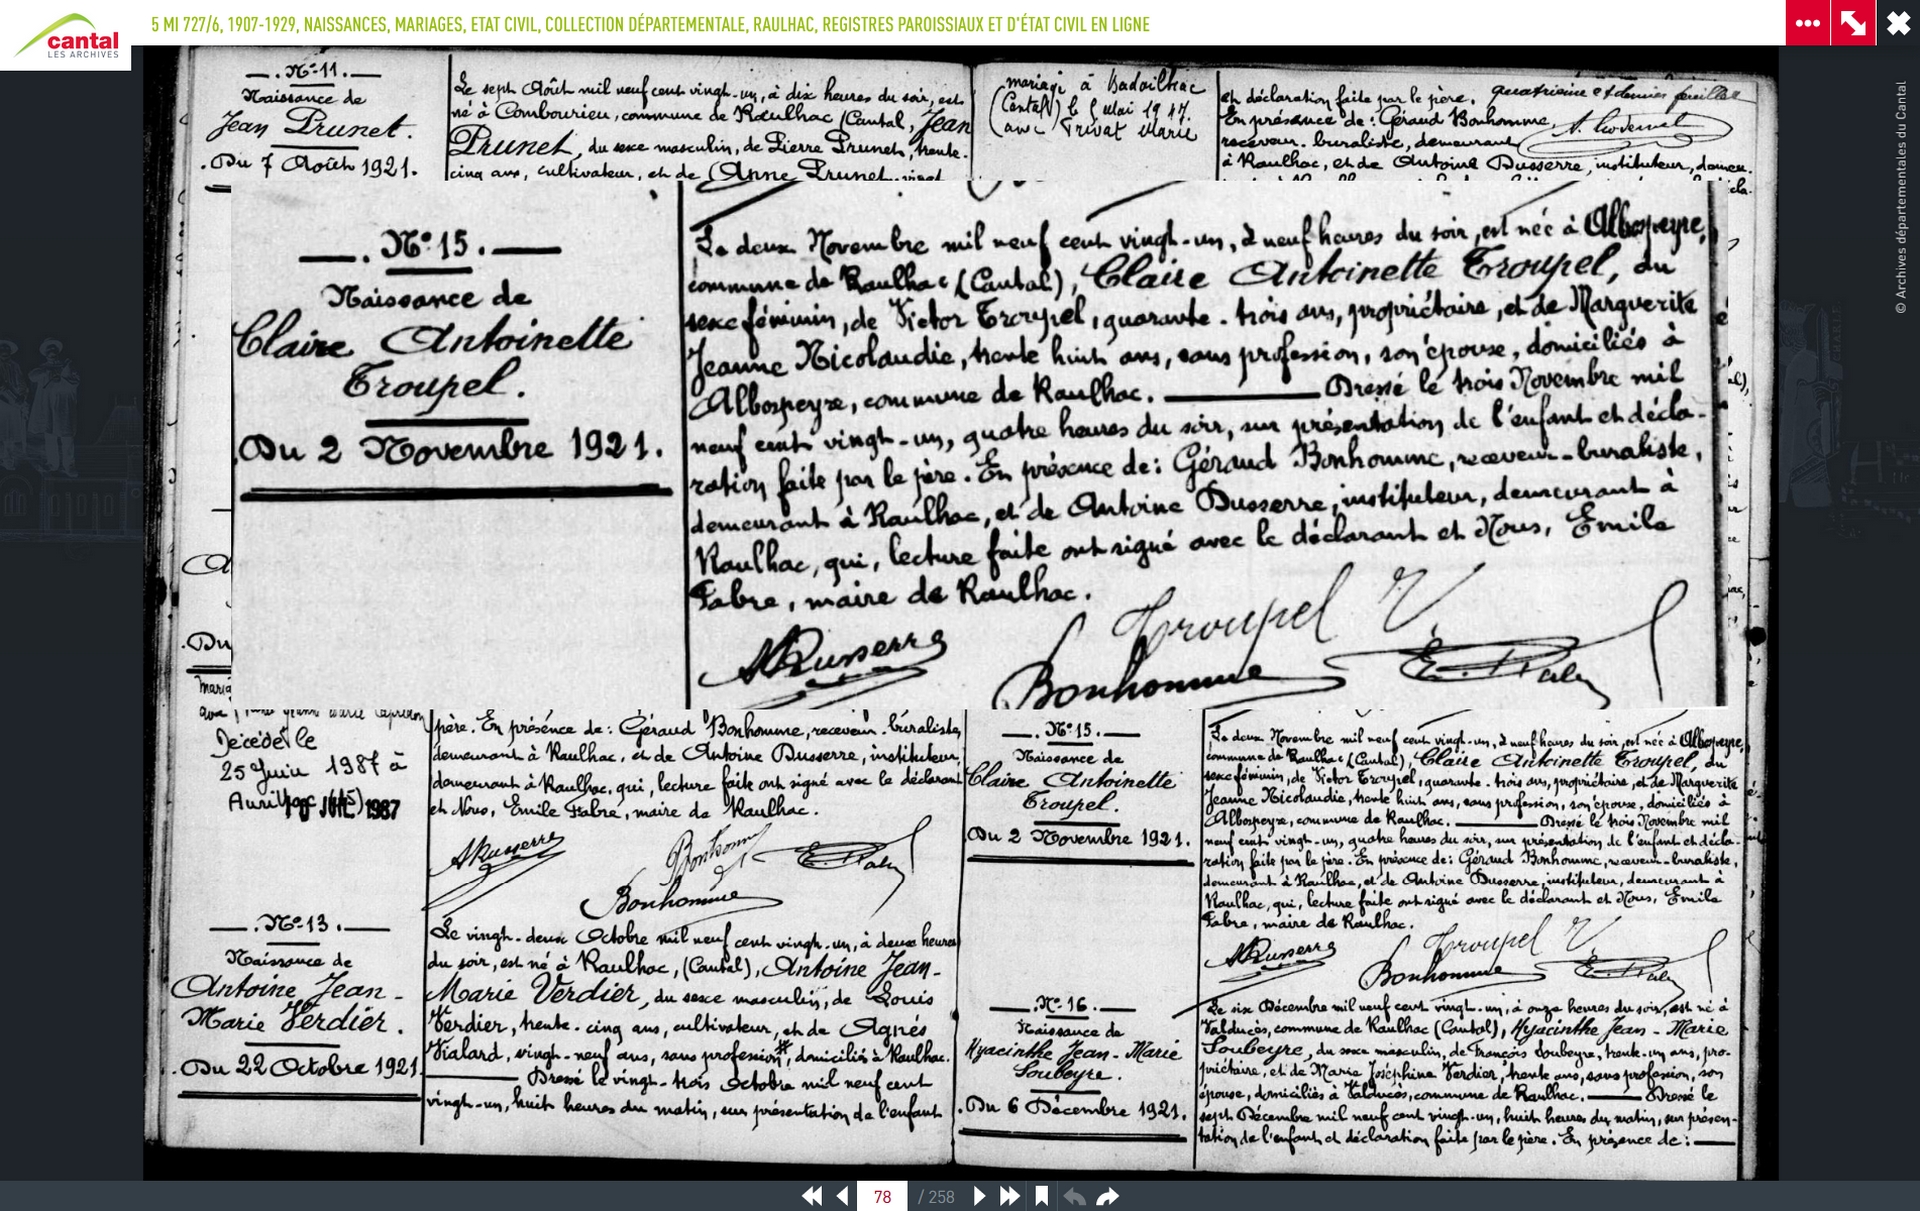 cantal
LES ARCHIVES
5 MI 727/6, 1907-1929, NAISSANCES, MARIAGES, ETAT CIVIL, COLLECTION DÉPARTEMENTALE, RAULHAC, REGISTRES PAROISSIAUX ET D'ÉTAT CIVIL EN LIGNE
© Archives départementales du Cantal
N° 11.
Naissance de
Jean Prunet.
Du 7 Août 1921.
Le sept Août mil neuf cent vingt-un, à dix heures du soir, est
né à Combourieu, commune de Raulhac (Cantal, Jean
Prunet, du sexe masculin, de Pierre Prunet, trente-
cinq ans, cultivateur, et de Anne Prunet, vingt
mariage à Badailhac
(Cantal) le 5 Mai 1947.
avec Trivat Marie
et déclaration faite par le père. quatrième et dernier feuillet
En présence de: Géraud Bonhomme,
receveur-buraliste, demeurant
à Raulhac, et de Antoine Dusserre, instituteur, demeu-
N° 15.
Naissance de
Claire Antoinette
Troupel.
Du 2 Novembre 1921.
Le deux Novembre mil neuf cent vingt-un, à neuf heures du soir, est née à Albospeyre,
commune de Raulhac (Cantal), Claire Antoinette Troupel, du
sexe féminin, de Victor Troupel, quarante-trois ans, propriétaire, et de Marguerite
Jeanne Nicolaudie, trente huit ans, sans profession, son épouse, domiciliés à
Albospeyre, commune de Raulhac. Dressé le trois Novembre mil
neuf cent vingt-un, quatre heures du soir, sur présentation de l'enfant et décla-
ration faite par le père. En présence de: Géraud Bonhomme, receveur-buraliste,
demeurant à Raulhac, et de Antoine Dusserre, instituteur, demeurant à
Raulhac, qui, lecture faite ont signé avec le déclarant et Nous, Emile
Fabre, maire de Raulhac.
Troupel V.
ADusserre
Bonhomme
E. Fabre
Décédé le
25 Juin 1987 à
Aurillac
1987
père. En présence de: Géraud Bonhomme, receveur-buraliste,
demeurant à Raulhac, et de Antoine Dusserre, instituteur,
demeurant à Raulhac, qui, lecture faite ont signé avec le déclarant
et Nous, Emile Fabre, maire de Raulhac.
ADusserre
Bonhomme
E. Fabre
Bonhomme
N° 13.
Naissance de
Antoine Jean-
Marie Verdier.
Du 22 Octobre 1921.
Le vingt-deux Octobre mil neuf cent vingt-un, à deux heures
du soir, est né à Raulhac, (Cantal), Antoine Jean-
Marie Verdier, du sexe masculin, de Louis
Verdier, trente-cinq ans, cultivateur, et de Agnès
Vialard, vingt-neuf ans, sans profession, domiciliés à Raulhac.
Dressé le vingt-trois Octobre mil neuf cent
vingt-un, huit heures du matin, sur présentation de l'enfant
N° 15.
Naissance de
Claire Antoinette
Troupel.
Du 2 Novembre 1921.
Le deux Novembre mil neuf cent vingt-un, à neuf heures du soir, est née à Albospeyre,
commune de Raulhac (Cantal), Claire Antoinette Troupel, du
sexe féminin, de Victor Troupel, quarante-trois ans, propriétaire, et de Marguerite
Jeanne Nicolaudie, trente huit ans, sans profession, son épouse, domiciliés à
Albospeyre, commune de Raulhac. Dressé le trois Novembre mil
neuf cent vingt-un, quatre heures du soir, sur présentation de l'enfant et décla-
ration faite par le père. En présence de: Géraud Bonhomme, receveur-buraliste,
demeurant à Raulhac, et de Antoine Dusserre, instituteur, demeurant à
Raulhac, qui, lecture faite ont signé avec le déclarant et Nous, Emile
Fabre, maire de Raulhac.
Troupel V.
ADusserre
Bonhomme
E. Fabre
N° 16.
Naissance de
Hyacinthe Jean-Marie
Soubeyre.
Du 6 Décembre 1921.
Le six Décembre mil neuf cent vingt-un, à onze heures du soir, est né à
Valduces, commune de Raulhac (Cantal), Hyacinthe Jean-Marie
Soubeyre, du sexe masculin, de François Soubeyre, trente-un ans, pro-
priétaire, et de Marie Joséphine Verdier, trente ans, sans profession, son
épouse, domiciliés à Valduces, commune de Raulhac. Dressé le
sept Décembre mil neuf cent vingt-un, huit heures du matin, sur présen-
tation de l'enfant et déclaration faite par le père. En présence de:
78 / 258